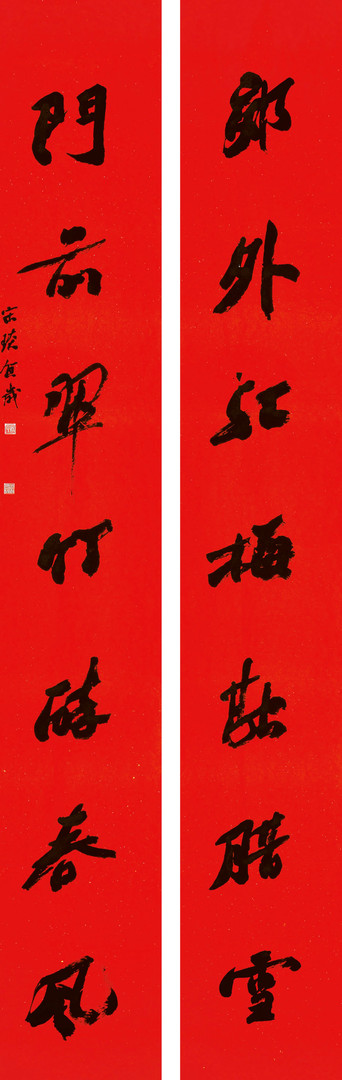 郊外红梅腊雪
門前翠竹醉春風
賀歲